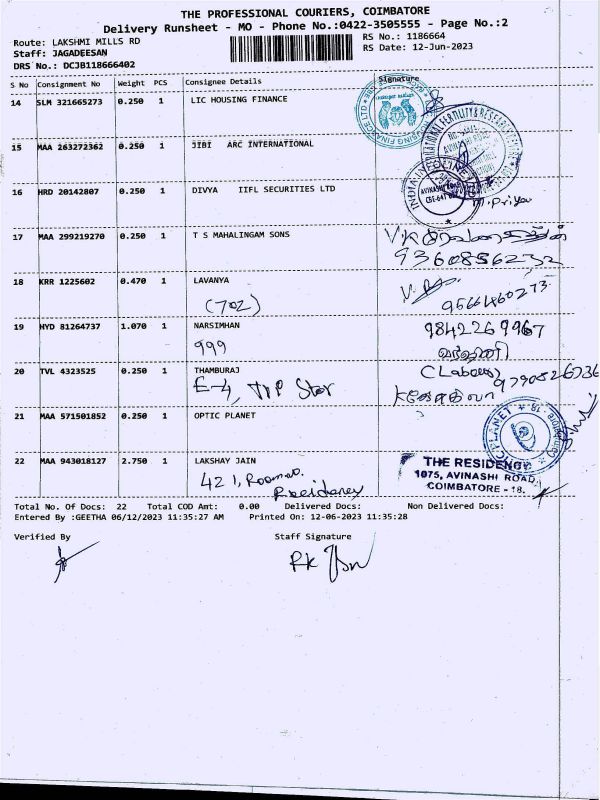 THE PROFESSIONAL COURIERS, COIMBATORE
Delivery Runsheet - MO - Phone No.:0422-3505555 - Page No.:2
Route: LAKSHMI MILLS RD
Staff: JAGADEESAN
DRS No.: DCJB118666402
RS No.: 1186664
RS Date: 12-Jun-2023
S No Consignment No Weight PCS Consignee Details Signature
14 SLM 321665273 0.250 1 LIC HOUSING FINANCE
15 MAA 263272362 0.250 1 JIBI ARC INTERNATIONAL
16 HRD 20142807 0.250 1 DIVYA IIFL SECURITIES LTD
M.Priya
17 MAA 299219270 0.250 1 T S MAHALINGAM SONS
9360856232
18 KRR 1225602 0.470 1 LAVANYA
(702)
9566460273
19 HYD 81264737 1.070 1 NARSIMHAN
999
9842269967
20 TVL 4323525 0.250 1 THAMBURAJ
E-4, TVP Star
9790826736
21 MAA 571501852 0.250 1 OPTIC PLANET
22 MAA 943018127 2.750 1 LAKSHAY JAIN
421,
Residency
THE RESIDENCY
1075, AVINASHI ROAD,
COIMBATORE - 18.
Total No. Of Docs: 22 Total COD Amt: 0.00 Delivered Docs: Non Delivered Docs:
Entered By :GEETHA 06/12/2023 11:35:27 AM Printed On: 12-06-2023 11:35:28
Verified By
Staff Signature